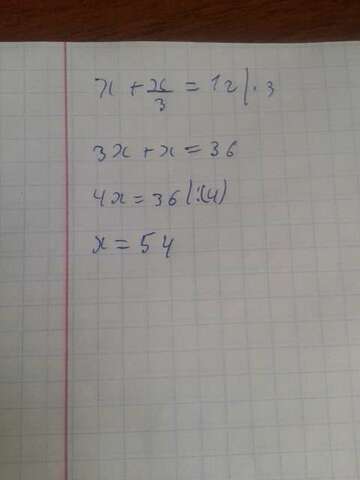 x + x/3 = 12 | · 3
3x + x = 36
4x = 36 |:(4)
x = 54